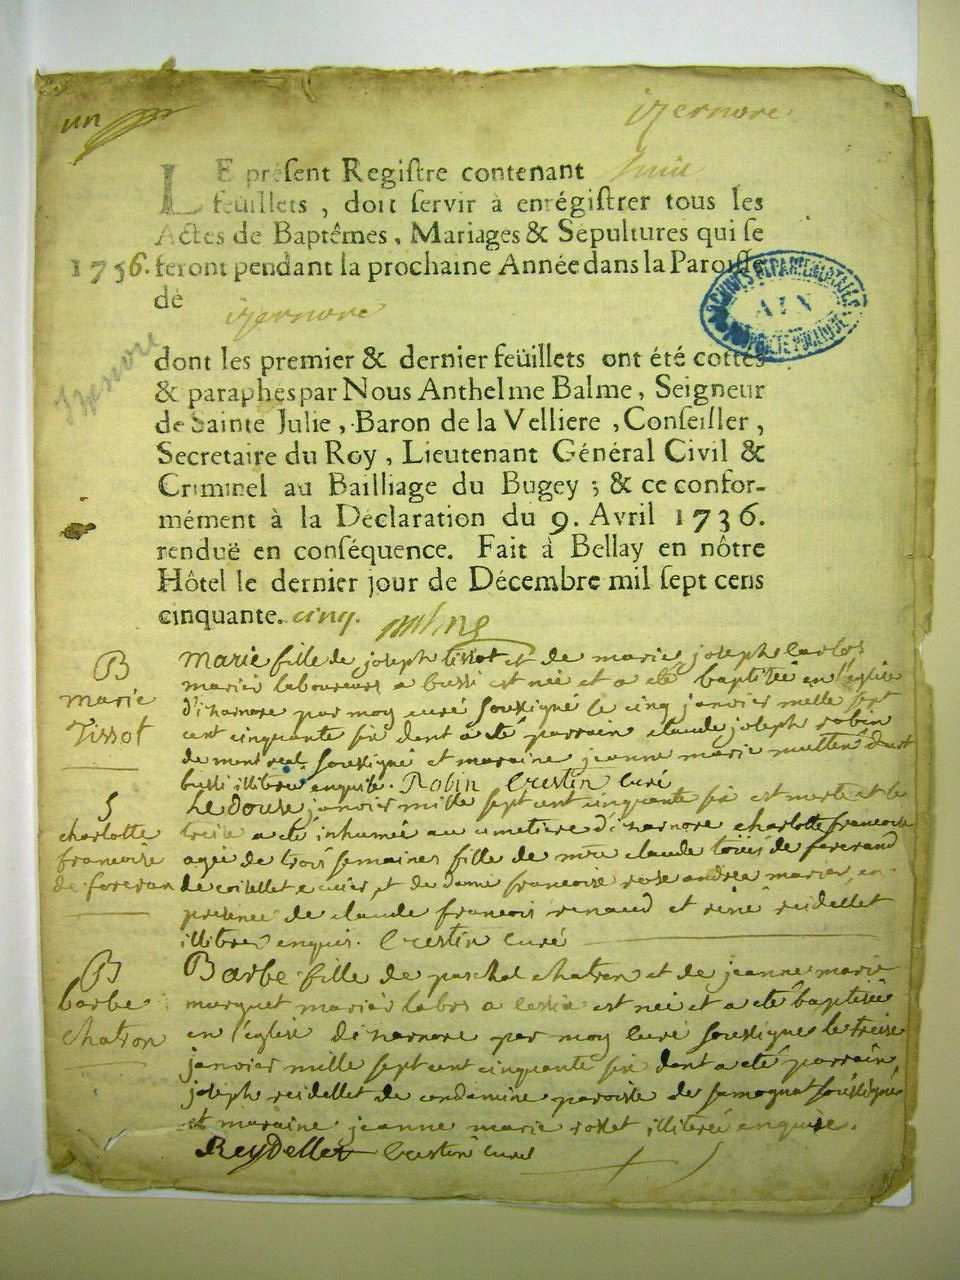 un
izernore
LE présent Registre contenant huit
feüillets, doit servir à enrégistrer tous les
Actes de Baptêmes, Mariages & Sepultures qui se
1756. feront pendant la prochaine Année dans la Paroisse
de
izernore
ARCHIVES DEPARTEMENTALES
AIN
Izernore
dont les premier & dernier feüillets ont été cottés
& paraphés par Nous Anthelme Balme, Seigneur
de Sainte Julie, Baron de la Velliere, Conseiller,
Secretaire du Roy, Lieutenant Général Civil &
Criminel au Bailliage du Bugey; & ce confor-
mément à la Déclaration du 9. Avril 1736.
renduë en conséquence. Fait à Bellay en nôtre
Hôtel le dernier jour de Décembre mil sept cens
cinquante. cinq.
B
marie
Tissot
marie fille de joseph tissot et de marie joseph
mariés laboureurs a bussi est née et a eté baptisée en l'église
d'izarnore par moy curé soussigné le cinq janvier mille sept
cent cinquante six dont a eté parrain claude joseph robin
de montreal soussigné et maraine jeanne marie
bussi illitérée enquise. Robin Crestin curé
S
charlotte
francoise
de foreran
Le douze janvier mille sept cent cinquante six est morte et le
treise a eté inhumée au cimetiere d'izarnore charlotte francoise
agée de trois semaines fille de claude de
de ecuier, et de dame francoise rose andrea mariés, en
presence de claude francois renaud et réné reidellet
illitérés enquis. Crestin curé
B
barbe
chatron
Barbe fille de paschal chatron et de jeanne marie
murguet mariés labrs a est née et a eté baptisée
en l'église d'izarnore par moy curé soussigné le treise
janvier mille sept cent cinquante six dont a eté parrain
joseph reidellet de condamine paroisse de samognat soussigné
et maraine jeanne marie rosset illitérée enquise.
Reydellet Crestin curé